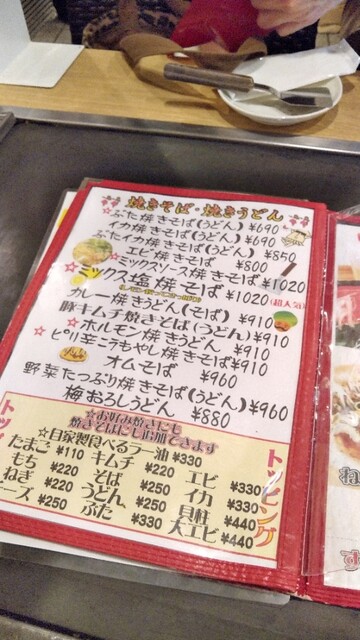 焼きそば・焼きうどん
☆ぶた焼きそば(うどん) ¥690
イカ焼きそば(うどん) ¥690
ぶたイカ焼きそば(うどん) ¥850
エビ焼きそば ¥800
☆ミックスソース焼きそば ¥1020
☆ミックス塩焼そば ¥1020 (超人気)
カレー焼きうどん(そば) ¥910
豚キムチ焼きそば(うどん) ¥910
☆ホルモン焼きうどん ¥910
☆ピリ辛ニラもやし焼きそば ¥910
オムそば ¥960
野菜たっぷり焼きそば(うどん) ¥960
梅おろしうどん ¥880
☆お好み焼きにも
焼きそばにも追加できます
トッピング
☆自家製食べるラー油 ¥330
たまご ¥110 キムチ ¥220 エビ ¥330
もち ¥220 そば ¥250 イカ ¥330
ねぎ ¥220 うどん ¥250 貝柱 ¥440
ーズ ¥250 ぶた ¥330 大エビ ¥440
トッ
ね
す